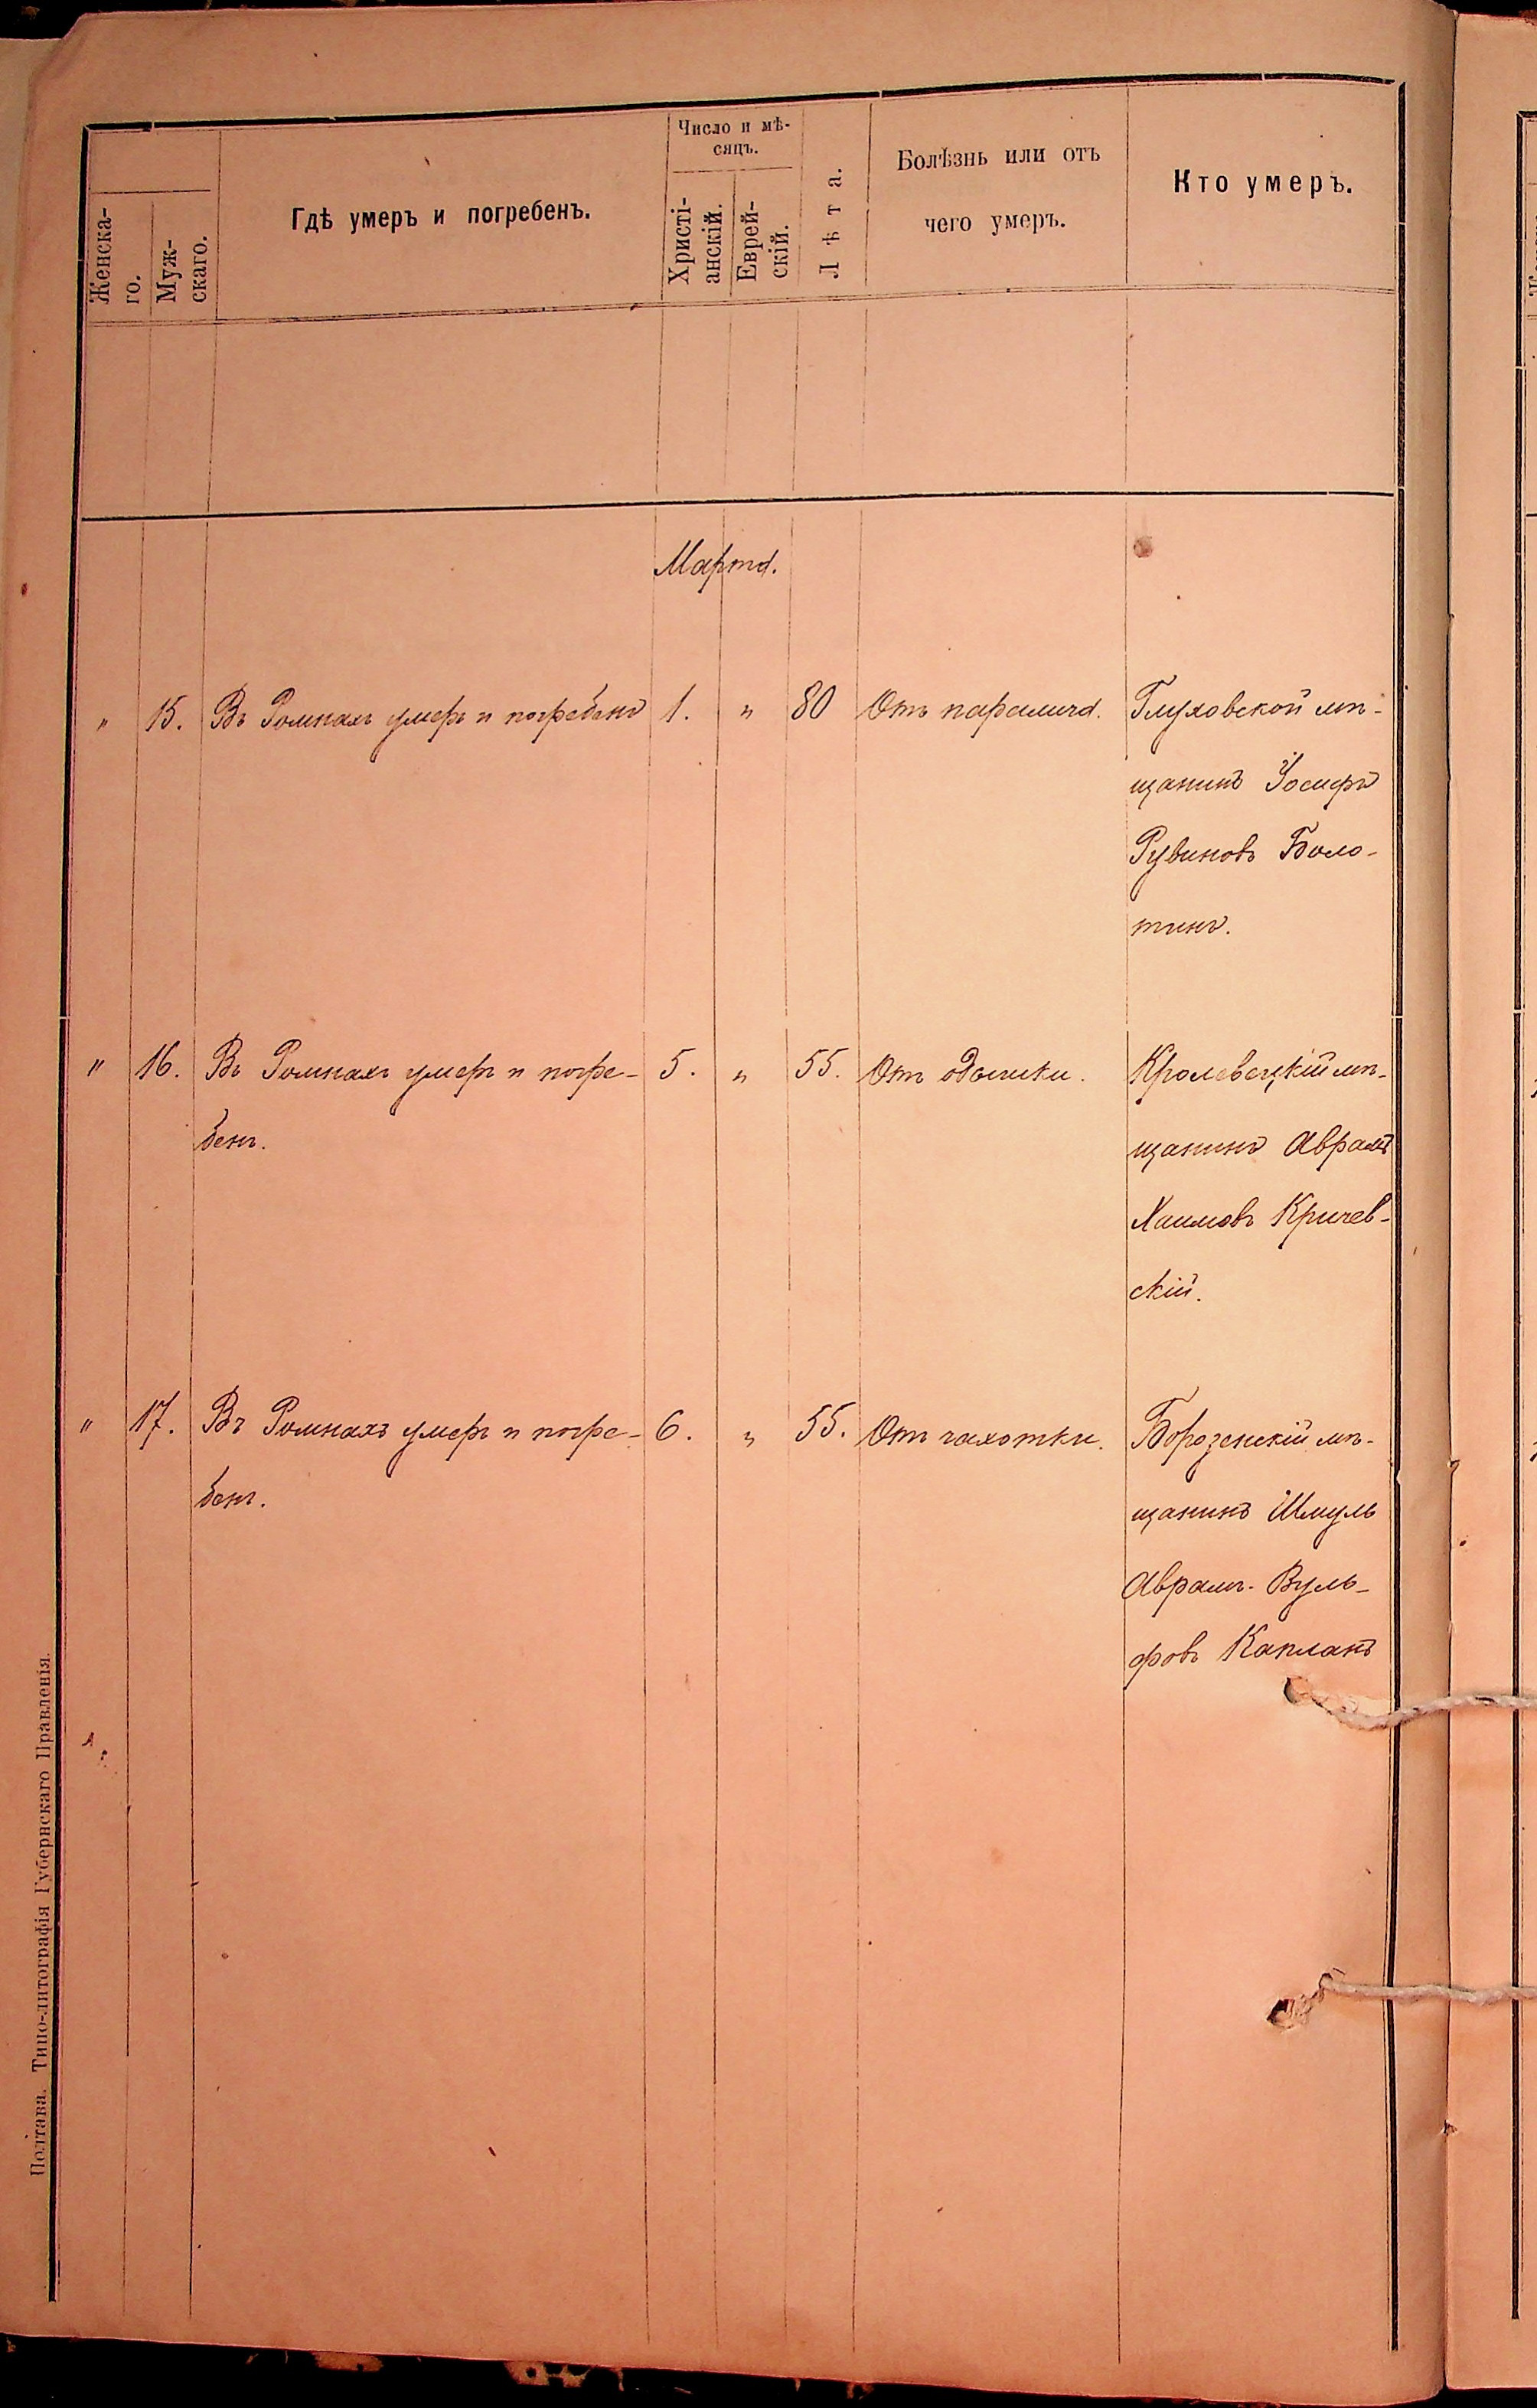 Женска-
го.
Муж-
скаго.
Гдѣ умеръ и погребенъ.
Число и мѣ-
сяцъ.
Христі-
анскій.
Еврей-
скій.
Лѣта.
Болѣзнь или отъ
чего умеръ.
Кто умеръ.
Марта.
" 15. Въ Ромнахъ умеръ и погребенъ 1. " 80 Отъ паралича. Глуховской мѣ-
щанинъ Іосифъ
Рувиновъ Боло-
тинъ.
" 16. Въ Ромнахъ умеръ и погре- 5. " 55. Отъ одышки. Кролевецкій мѣ-
бенъ. щанинъ Аврамъ
Хаимовъ Кричев-
скій.
" 17. Въ Ромнахъ умеръ и погре- 6. " 55. Отъ чахотки. Борозенскій мѣ-
бенъ. щанинъ Шмуль
Аврамъ-Вуль-
фовъ Капланъ
Полтава. Типо-литографія Губернскаго Правленія.